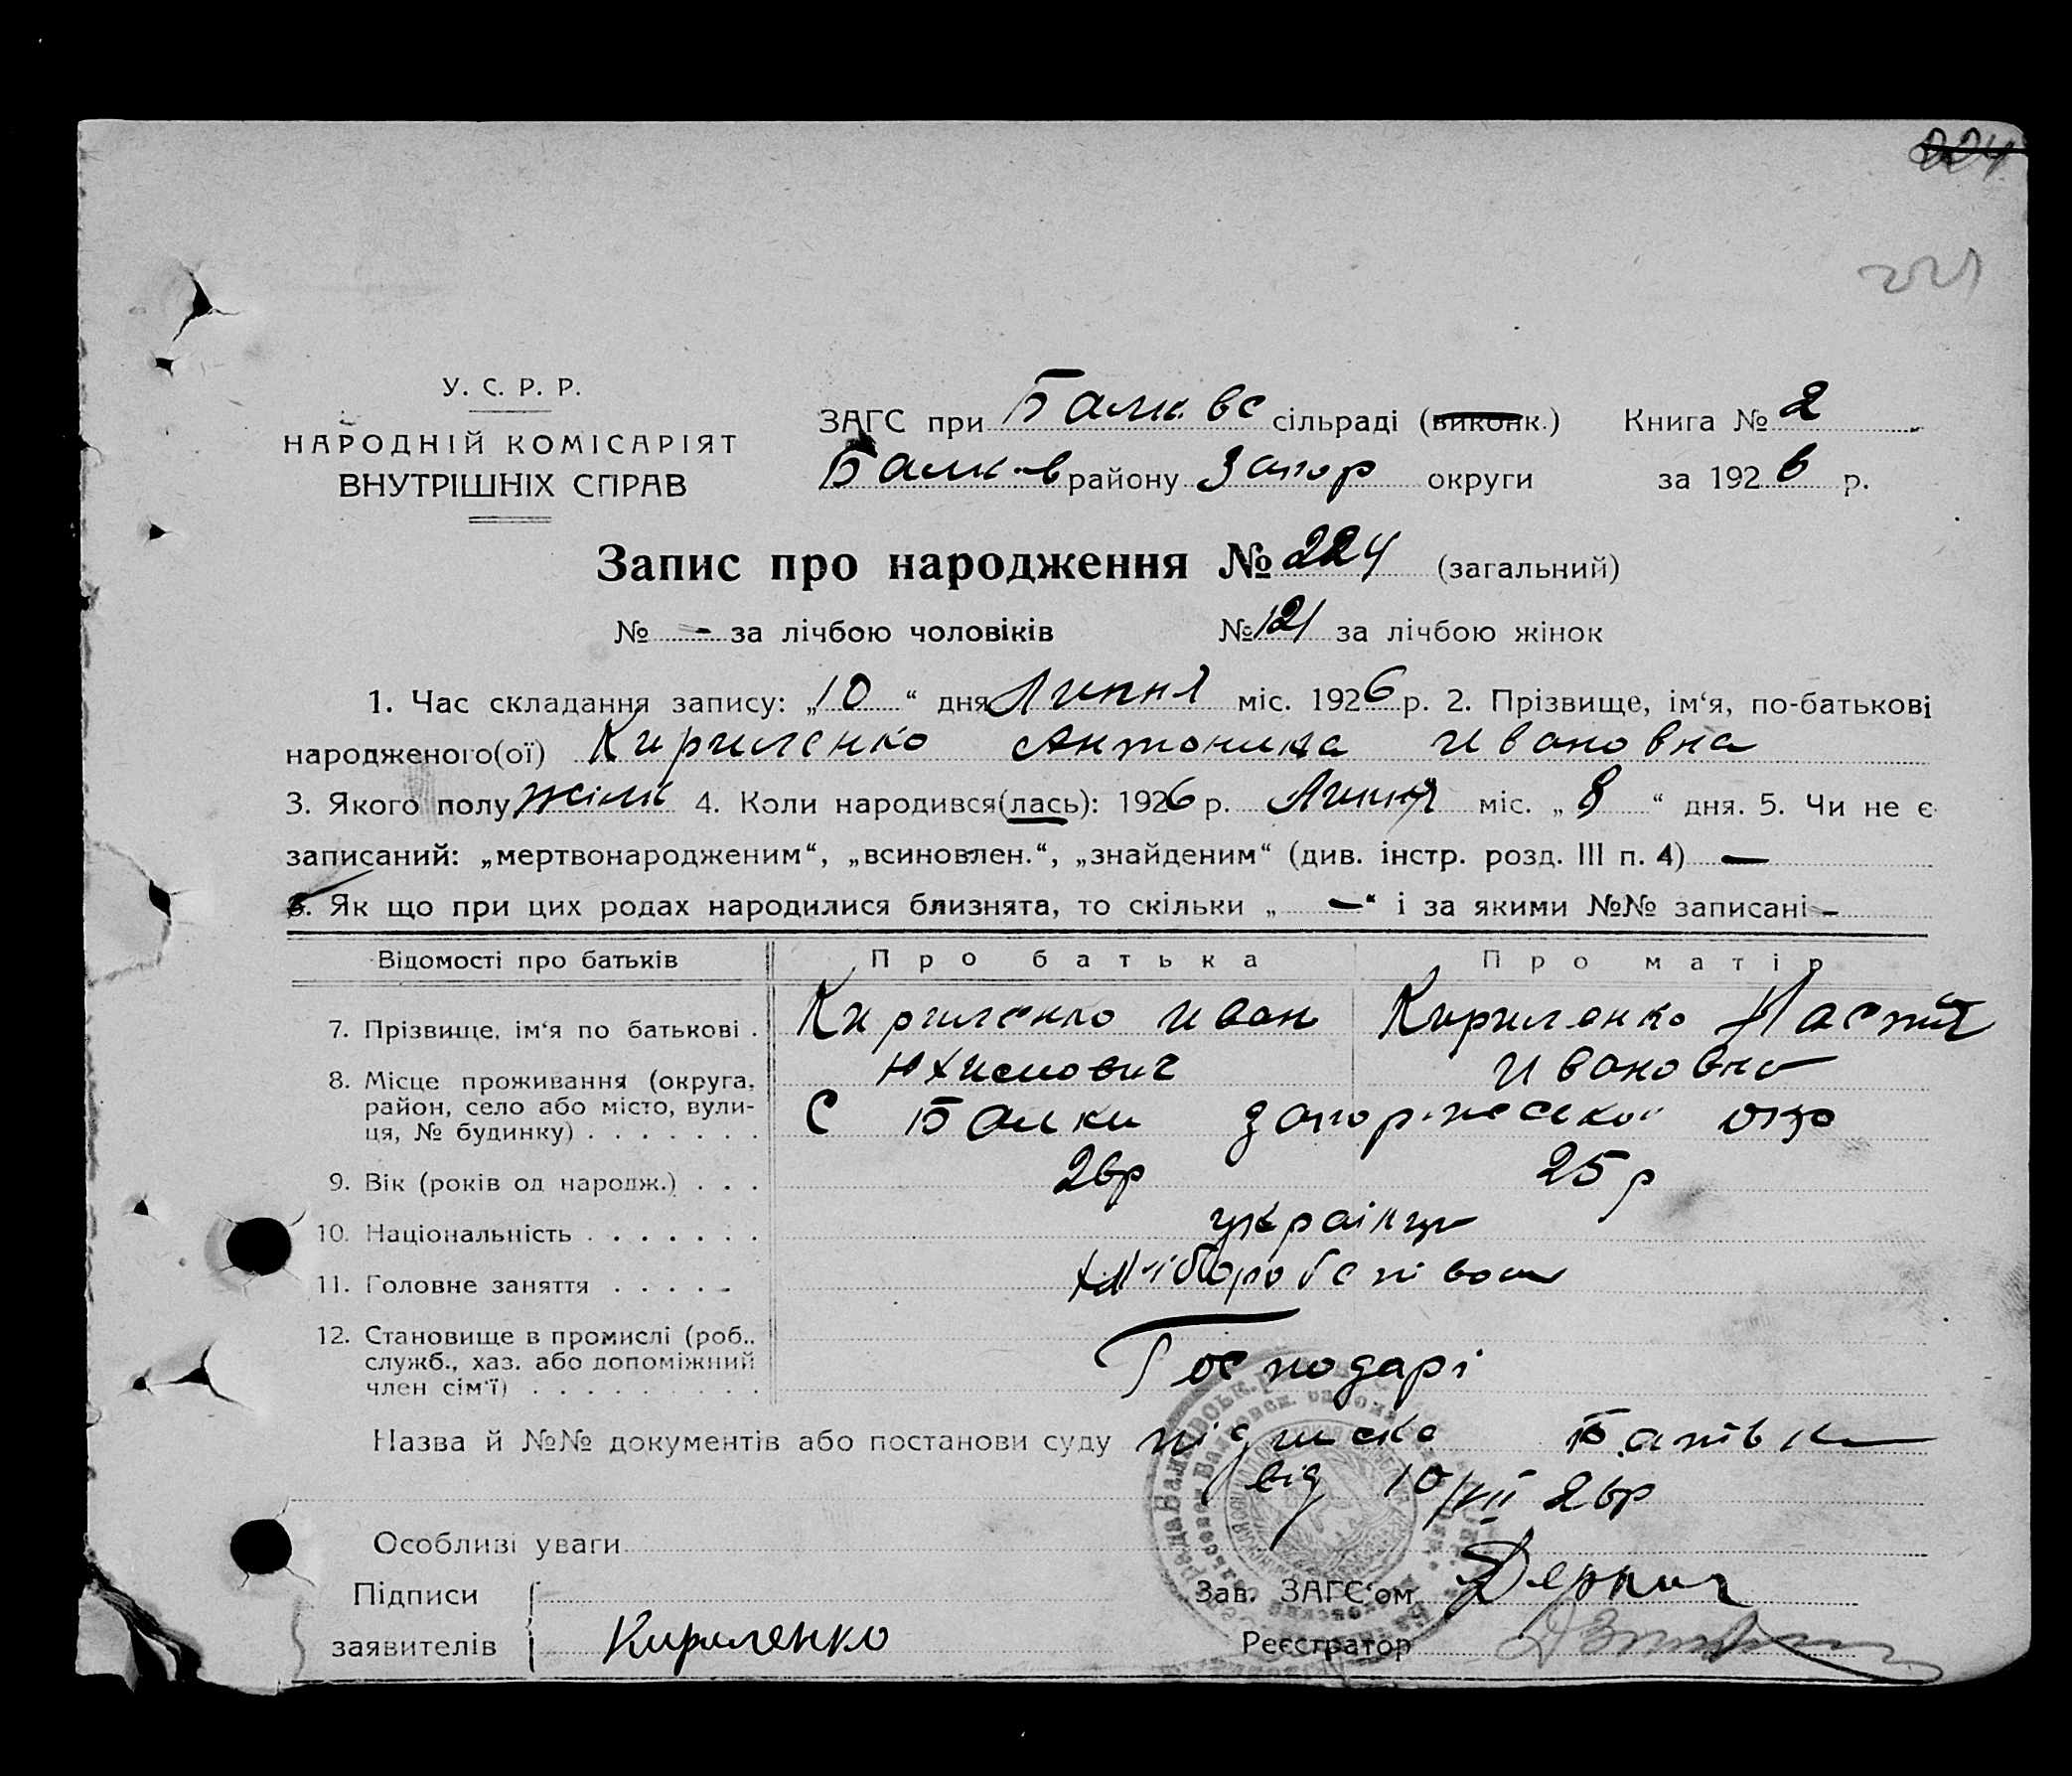 224
221
У. С. Р. Р.
НАРОДНІЙ КОМІСАРІЯТ
ВНУТРІШНІХ СПРАВ
ЗАГС при Балківс сільраді (виконк.) Книга № 2
Балків району Запор округи за 1926 р.
Запис про народження № 224 (загальний)
№ - за лічбою чоловіків № 121 за лічбою жінок
1. Час складання запису: „10“ дня Липня міс. 1926 р. 2. Прізвище, ім‘я, по-батькові
народженого(ої) Кириленко Антонина Ивановна
3. Якого полу жінк 4. Коли народився(лась): 1926 р. Липня міс. „8“ дня. 5. Чи не є
записаний: „мертвонародженим“, „всиновлен.“, „знайденим“ (див. інстр. розд. III п. 4) —
6. Як що при цих родах народилися близнята, то скільки „ — “ і за якими №№ записані -
Відомості про батьків Про батька Про матір
7. Прізвище, ім‘я по батькові . Кириленко Иван Кириленко Настя
Юхимович Ивановна
8. Місце проживання (округа,
район, село або місто, вули-
ця, № будинку) . . . . . . . С Балки Запоріжської окр
9. Вік (років од народж.) . . . 26р 25р
10. Національність . . . . . . . українци
11. Головне заняття . . . . . хліборобством
12. Становище в промислі (роб.,
служб., хаз. або допоміжний
член сім‘ї) . . . . . . . . . Господарі
Назва й №№ документів або постанови суду підписка Батька
від 10/VII 26р
Особливі уваги
Підписи
заявителів Кириленко
Зав. ЗАГС‘ом
Реєстратор